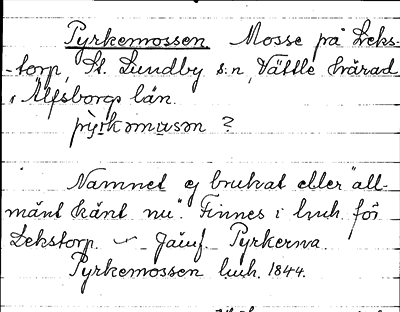 Pyrkemossen. Mosse på Leks-
-torp, St. Lundby s:n, Vättle härad
i Älfsborgs län.
pyrkəmusən ?
Namnet ej brukat eller "all-
mänt känt nu". Finnes i huh. för
Lekstorp. — Jämf. Pyrkerna.
Pyrkemossen huh. 1844.